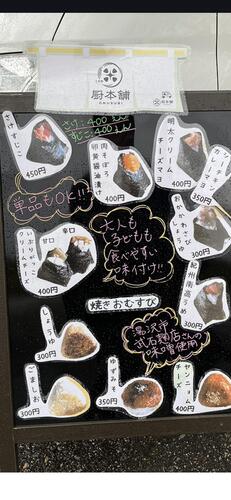 厨本舗
OMUSUBI
厨本舗
さけすじこ
450円
さけ:400えん
すじこ:400えん
肉そぼろ
卵黄醤油漬け
400円
明太クリーム
チーズマヨ
400円
カレーチキン
350円
単品もOK!!
いぶりがっこ
クリームチーズ
甘口
辛口
400円
大人も
子どもも
食べやすい
味付け!!
おかか
わさび
350円
紀州南高うめ
300円
焼きおむすび
しょうゆ
300円
湯沢市
武石麹店さんの
味噌使用
ごましお
300円
ゆずみそ
350円
ヤンニョム
チーズ
400円